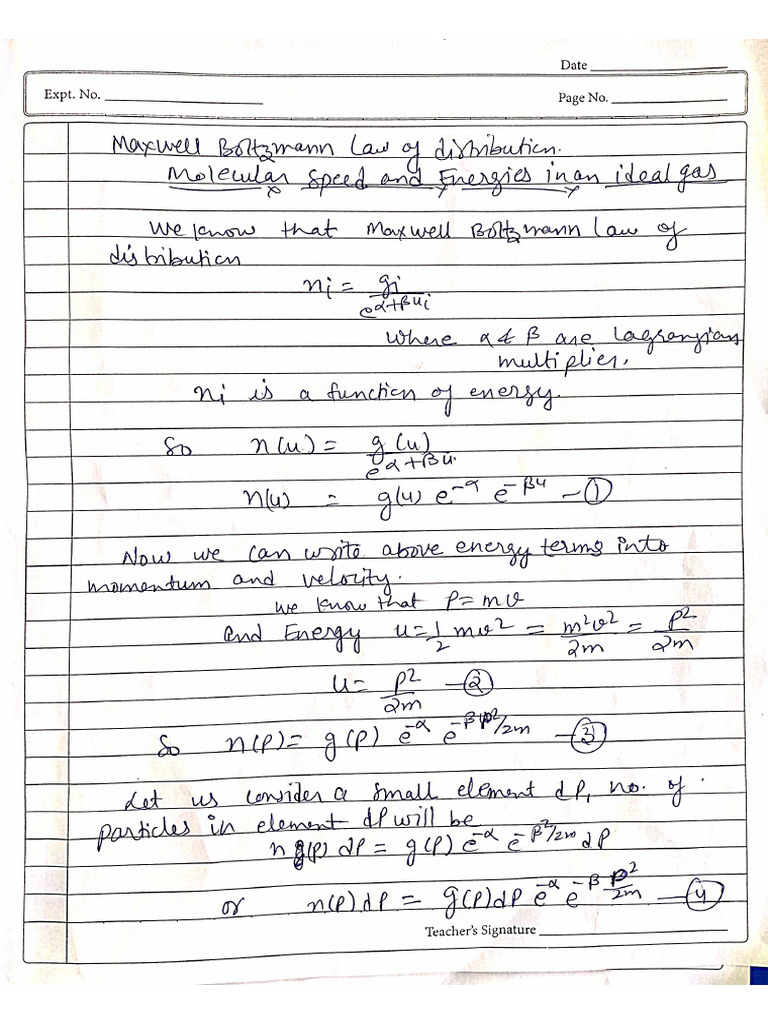 Date
Expt. No.
Page No.
Maxwell Boltzmann Law of distribution.
Molecular Speed and Energies in an ideal gas
We know that Maxwell Boltzmann Law of
distribution
ni = gi / e^α+βui
where α & β are Lagrangian
multiplier.
ni is a function of energy.
So n(u) = g(u) / e^α+βu
n(u) = g(u) e^-α e^-βu - ①
Now we can write above energy terms into
momentum and velocity.
We know that P = mv
and Energy u = 1/2 mv² = m²v²/2m = P²/2m
u = P²/2m - ②
So n(P) = g(P) e^-α e^-βP²/2m - ③
Let us consider a small element dP, no. of
particles in element dP will be
n(P) dP = g(P) e^-α e^-β²/2m dP
or n(P) dP = g(P) dP e^-α e^-β P²/2m - ④
Teacher's Signature